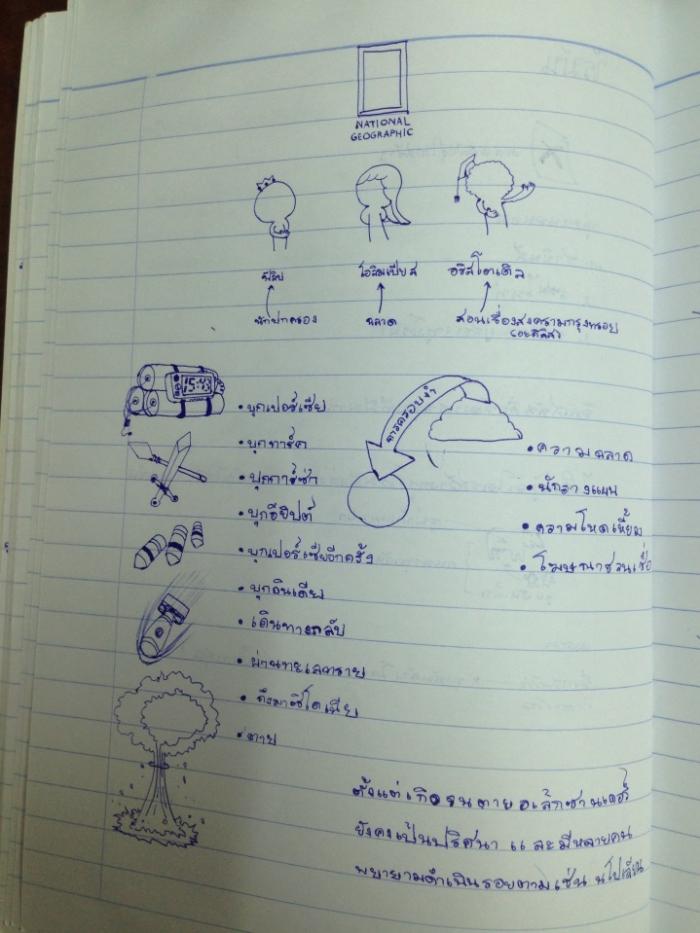 NATIONAL
GEOGRAPHIC
ฟิลิป
โอลิมเปียส
อริสโตเติล
นักปกครอง
ฉลาด
สอนเรื่องสงครามกรุงทรอย
(อะคิลิส)
15:43
• บุกเปอร์เซีย
• บุกทาร์ค
• บุกการ์ซ่า
• บุกอียิปต์
• บุกเปอร์เซียอีกครั้ง
• บุกอินเดีย
• เดินทางกลับ
• ผ่านทะเลทราย
• ถึงมาซิโดเนีย
• ตาย
การครอบงำ
• ความฉลาด
• นักวางแผน
• ความโหดเหี้ยม
• โฆษณาชวนเชื่อ
ตั้งแต่เกิดจนตายอเล็กซานเดอร์
ยังคงเป็นปริศนา และมีหลายคน
พยายามดำเนินรอยตามเช่น นโปเลียน